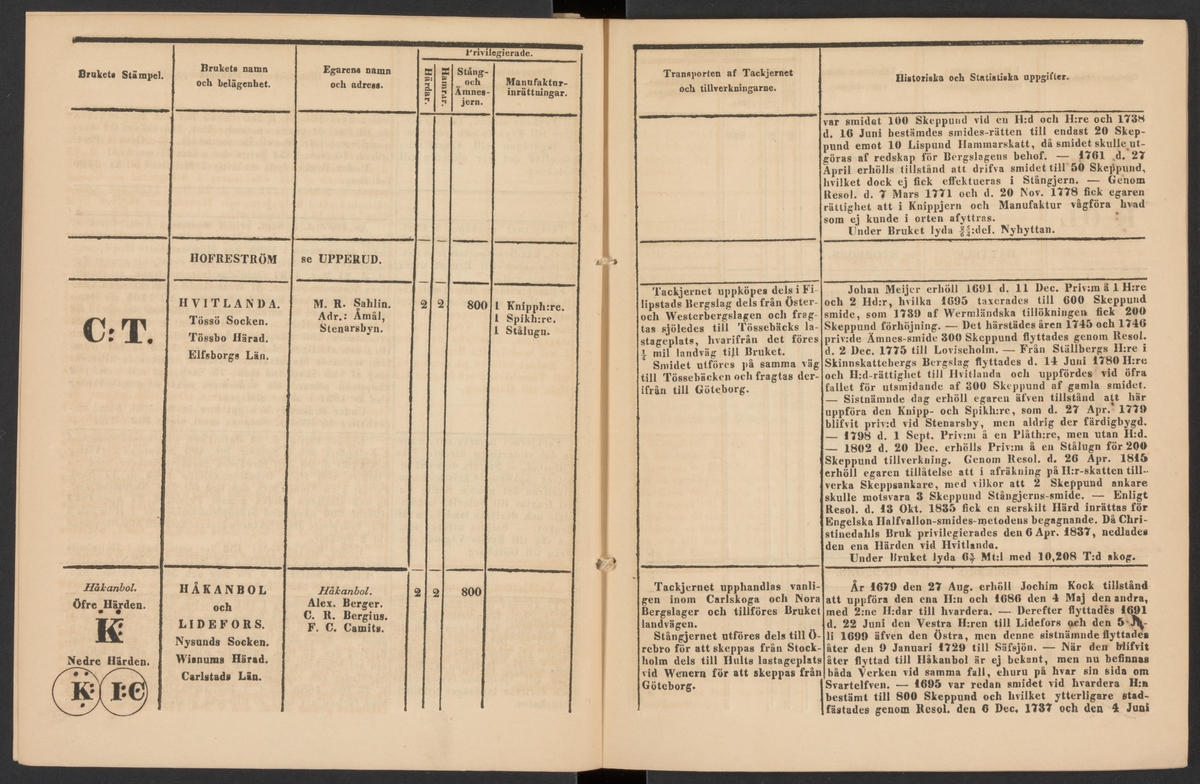 Brukets Stämpel.
Brukets namn
och belägenhet.
Egarens namn
och adress.
Privilegierade.
Härdar.
Hamrar.
Stång-
och
Ämnes-
jern.
Manufaktur-
inrättningar.
HOFRESTRÖM
se UPPERUD.
C: T.
HVITLANDA.
Tössö Socken.
Tössbo Härad.
Elfsborgs Län.
M. R. Sahlin.
Adr.: Åmål,
Stenarsbyn.
2
2
800
1 Knipph:re.
1 Spikh:re.
1 Stålugn.
Håkanbol.
Öfre Härden.
K:
Nedre Härden.
K: I:C
HÅKANBOL
och
LIDEFORS.
Nysunds Socken.
Wisnums Härad.
Carlstads Län.
Håkanbol.
Alex. Berger.
C. R. Bergius.
F. C. Camitz.
2
2
800
Transporten af Tackjernet
och tillverkningarne.
Historiska och Statistiska uppgifter.
var smidet 100 Skeppund vid en H:d och H:re och 1738
d. 16 Juni bestämdes smides-rätten till endast 20 Skep-
pund emot 10 Lispund Hammarskatt, då smidet skulle ut-
göras af redskap för Bergslagens behof. — 1761 d. 27
April erhölls tillstånd att drifva smidet till 50 Skeppund,
hvilket dock ej fick effektueras i Stångjern. — Genom
Resol. d. 7 Mars 1771 och d. 20 Nov. 1778 fick egaren
rättighet att i Knippjern och Manufaktur vågföra hvad
som ej kunde i orten afyttras.
Under Bruket lyda :del. Nyhyttan.
Tackjernet uppköpes dels i Fi-
lipstads Bergslag dels från Öster-
och Westerbergslagen och frag-
tas sjöledes till Tössebäcks la-
stageplats, hvarifrån det föres
mil landväg till Bruket.
Smidet utföres på samma väg
till Tössebäcken och fragtas der-
ifrån till Göteborg.
Johan Meijer erhöll 1691 d. 11 Dec. Priv:m å 1 H:re
och 2 Hd:r, hvilka 1695 taxerades till 600 Skeppund
smide, som 1739 af Wermländska tillökningen fick 200
Skeppund förhöjning. — Det härstädes åren 1745 och 1746
priv:de Ämnes-smide 300 Skeppund flyttades genom Resol.
d. 2 Dec. 1775 till Loviseholm. — Från Ställbergs H:re i
Skinnskattebergs Bergslag flyttades d. 14 Juni 1780 H:re
och H:d-rättighet till Hvitlanda och uppfördes vid öfra
fallet för utsmidande af 300 Skeppund af gamla smidet.
— Sistnämnde dag erhöll egaren äfven tillstånd att här
uppföra den Knipp- och Spikh:re, som d. 27 Apr. 1779
blifvit priv:d vid Stenarsby, men aldrig der färdigbygd.
— 1798 d. 1 Sept. Priv:m å en Plåth:re, men utan H:d.
— 1802 d. 20 Dec. erhölls Priv:m å en Stålugn för 200
Skeppund tillverkning. Genom Resol. d. 26 Apr. 1815
erhöll egaren tillåtelse att i afräkning på H:r-skatten till-
verka Skeppsankare, med vilkor att 2 Skeppund ankare
skulle motsvara 3 Skeppund Stångjerns-smide. — Enligt
Resol. d. 13 Okt. 1835 fick en serskilt Härd inrättas för
Engelska Halfvallon-smides-metodens begagnande. Då Chri-
stinedahls Bruk privilegierades den 6 Apr. 1837, nedlades
den ena Härden vid Hvitlanda.
Under Bruket lyda Mt:l med 10,208 T:d skog.
Tackjernet upphandlas vanli-
gen inom Carlskoga och Nora
Bergslager och tillföres Bruket
landvägen.
Stångjernet utföres dels till Ö-
rebro för att skeppas från Stock-
holm dels till Hults lastageplats
vid Wenern för att skeppas från
Göteborg.
År 1679 den 27 Aug. erhöll Jochim Kock tillstånd
att uppföra den ena H:n och 1686 den 4 Maj den andra,
med 2:ne H:dar till hvardera. — Derefter flyttades 1691
d. 22 Juni den Vestra H:ren till Lidefors och den 5 Ju-
li 1699 äfven den Östra, men denne sistnämnde flyttades
åter den 9 Januari 1729 till Säfsjön. — När den blifvit
åter flyttad till Håkanbol är ej bekant, men nu befinnas
båda Verken vid samma fall, ehuru på hvar sin sida om
Svartelfven. — 1695 var redan smidet vid hvardera H:n
bestämt till 800 Skeppund och hvilket ytterligare stad-
fästades genom Resol. den 6 Dec. 1737 och den 4 Juni